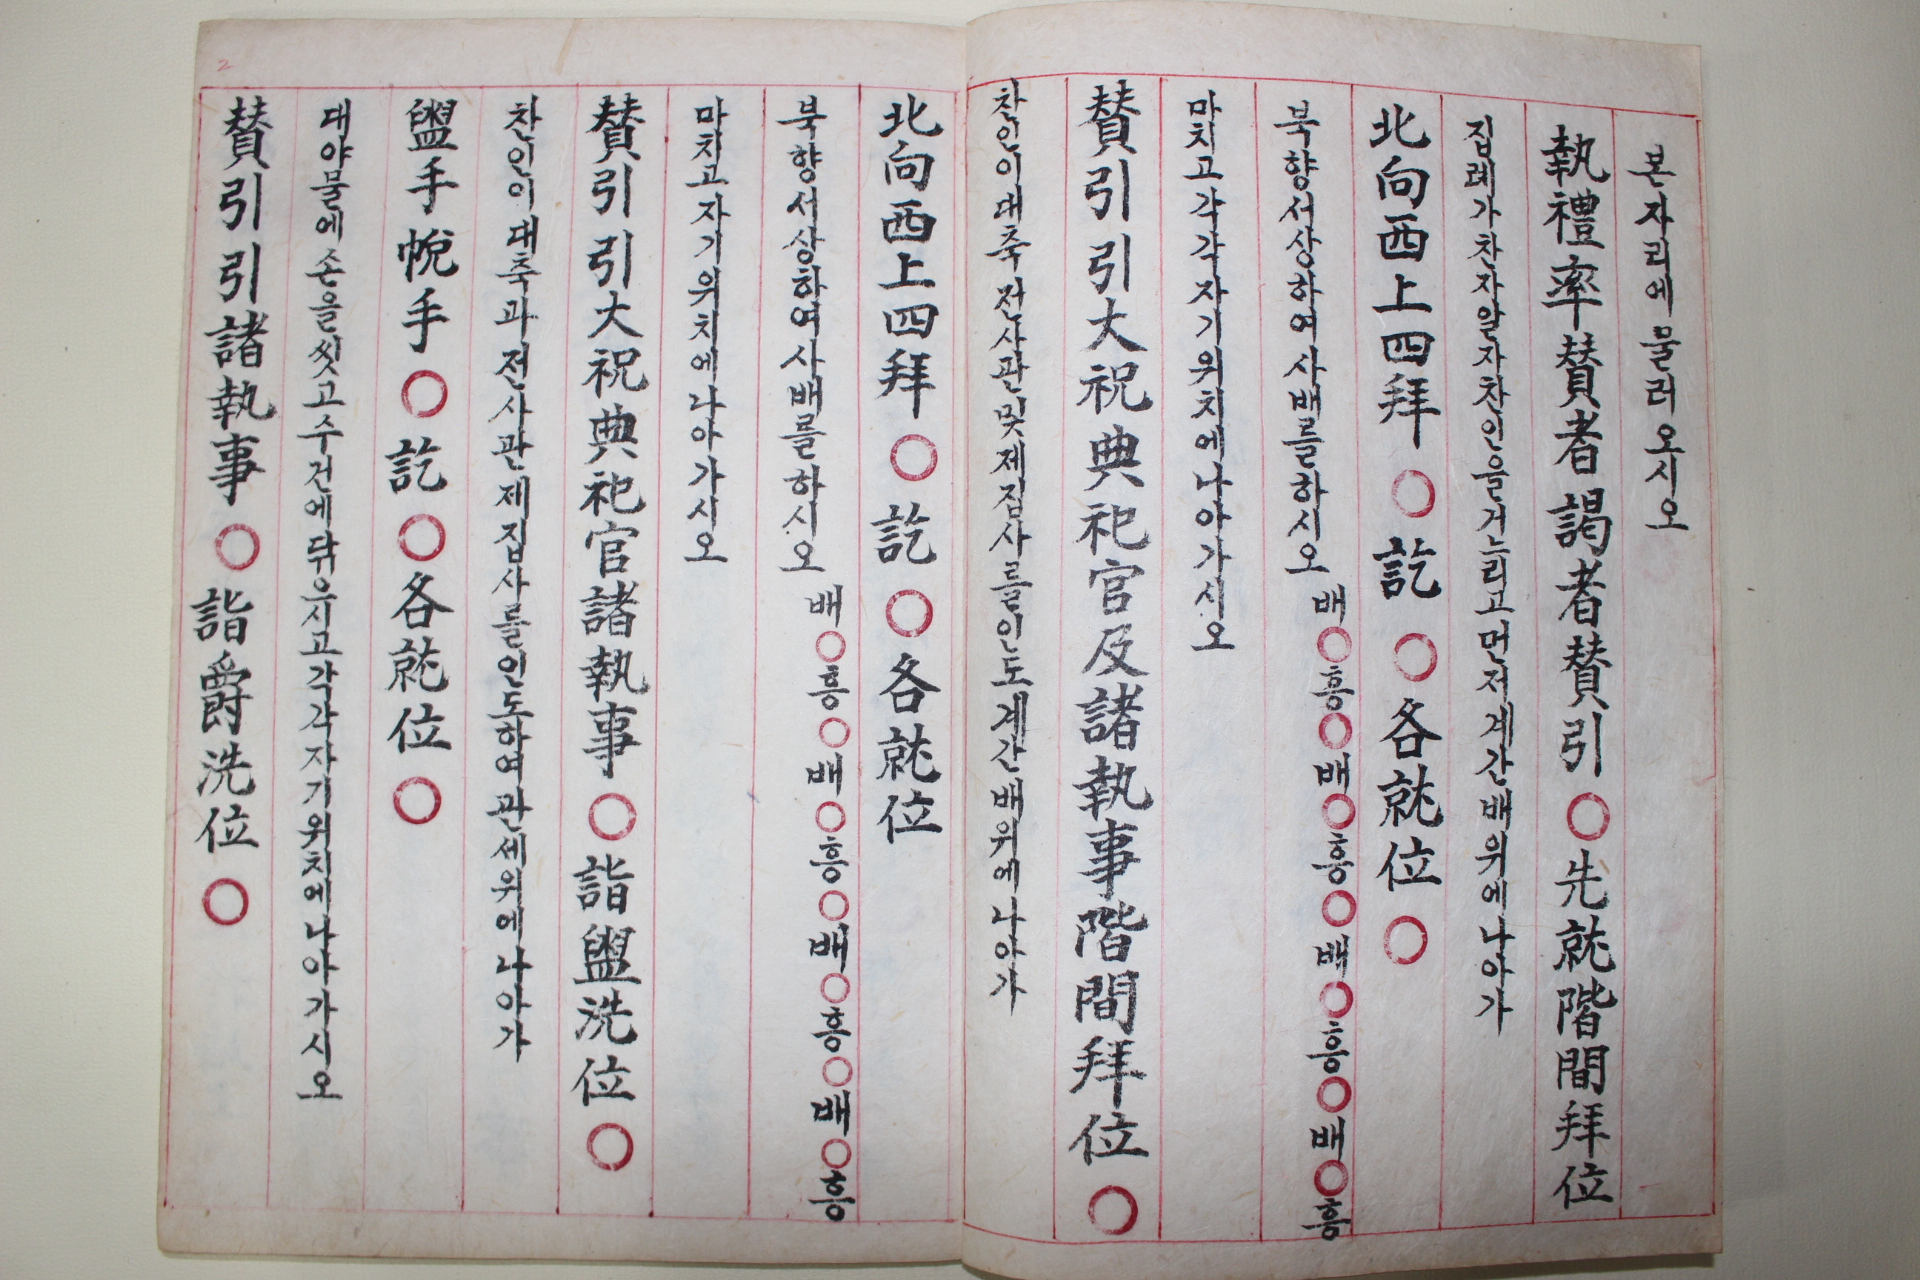 본자리에물러오시오
執禮率贊者謁者贊引○先就階間拜位
집례가찬자알자찬인을거느리고먼저계간배위에나아가
北向西上四拜○訖○各就位○
북향서상하여사배를하시오 배○흥○배○흥○배○흥○배○흥
마치고각각자기위치에나아가시오
贊引引大祝典祀官及諸執事階間拜位○
찬인이대축전사관및제집사를인도계간배위에나아가
北向西上四拜○訖○各就位
북향서상하여사배를하시오 배○흥○배○흥○배○흥○배○흥
마치고자기위치에나아가시오
贊引引大祝典祀官諸執事○詣盥洗位○
찬인이대축과전사관제집사를인도하여관세위에나아가
盥手帨手○訖○各就位○
대야물에손을씻고수건에닦으시고각각자기위치에나아가시오
贊引引諸執事○詣爵洗位○
2